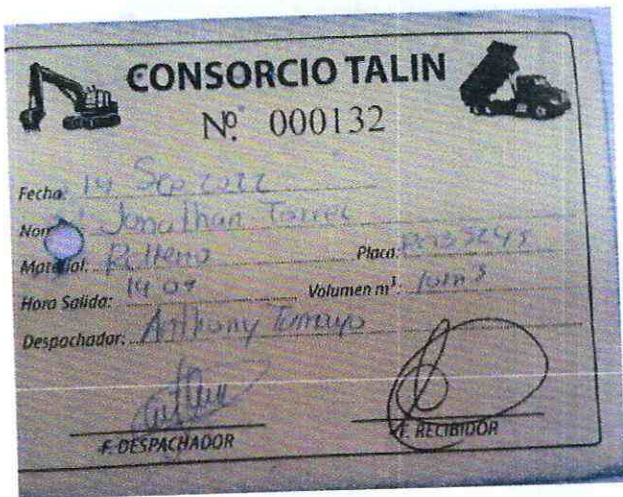 CONSORCIO TALIN
Nº 000132
Fecha: 14 Sep 2022
Jonathan Torres
Material: Relleno Placa:
Hora Salida: 14 07 Volumen m³: 10m³
Despachador: Anthony Tamayo
F. DESPACHADOR F. RECIBIDOR